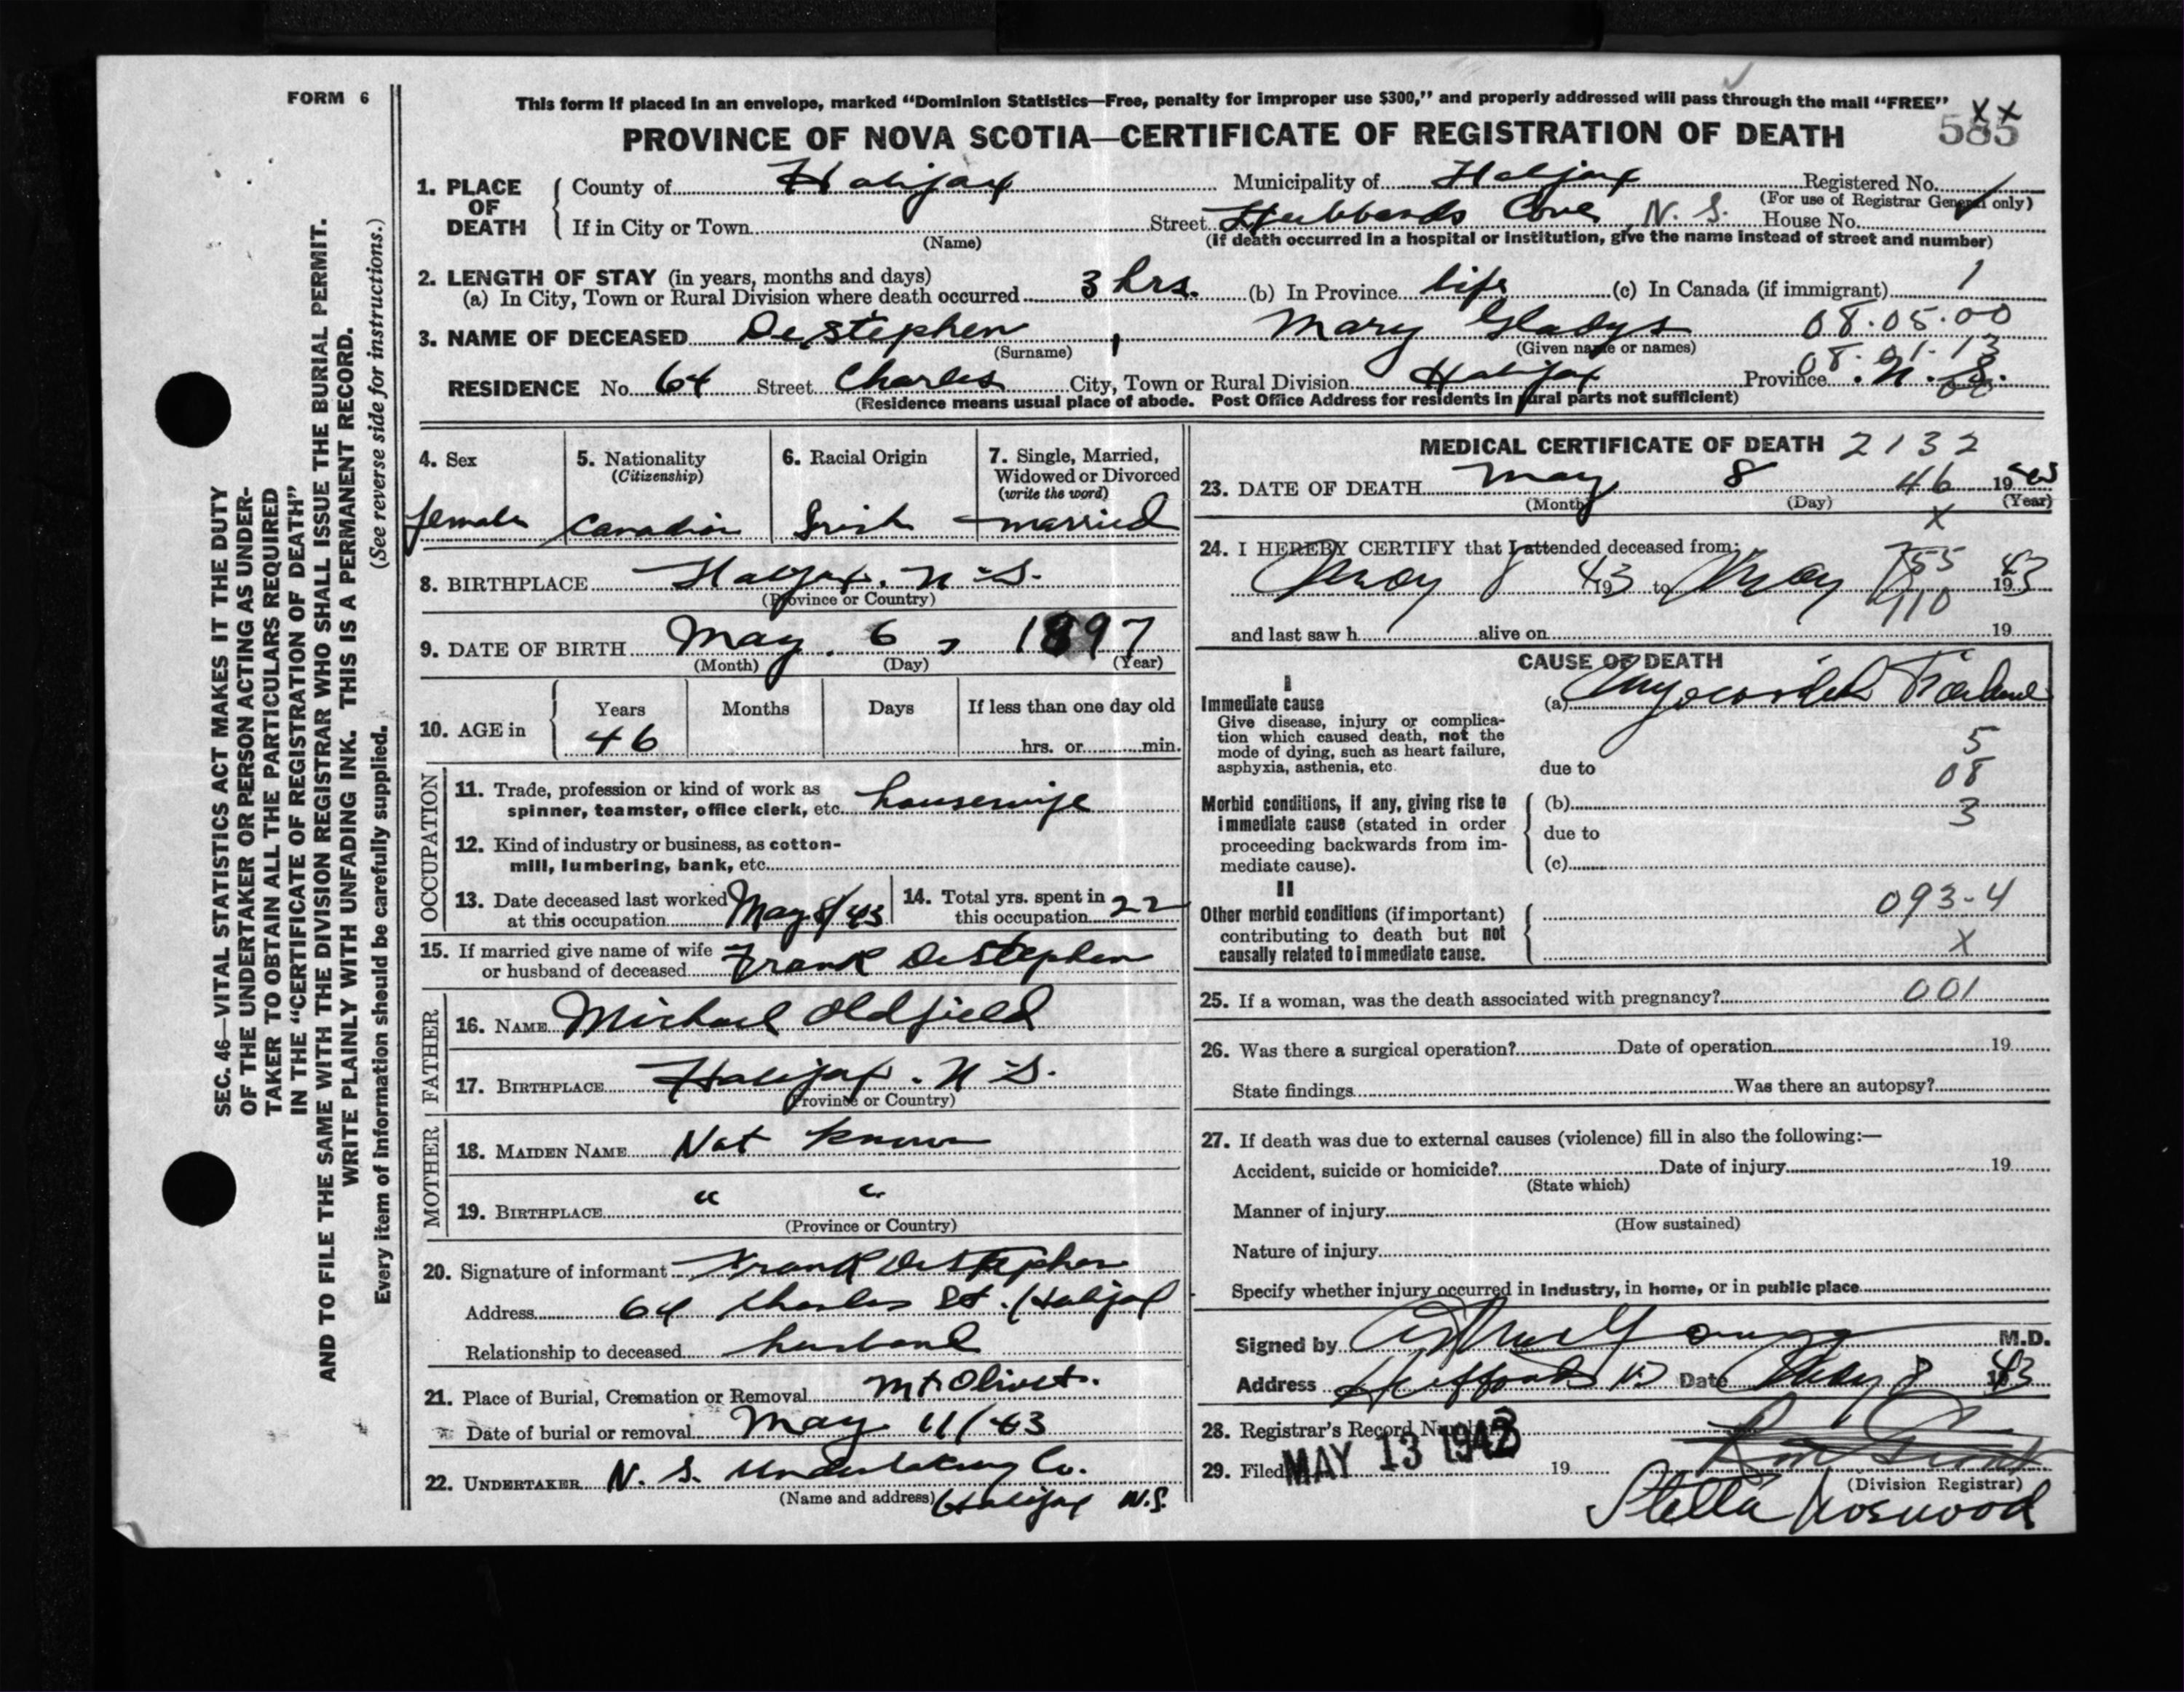 FORM 6
This form if placed in an envelope, marked “Dominion Statistics—Free, penalty for improper use $300,” and properly addressed will pass through the mail “FREE”
PROVINCE OF NOVA SCOTIA—CERTIFICATE OF REGISTRATION OF DEATH
585
x x
1. PLACE OF DEATH
County of Halifax Municipality of Halifax Registered No.
(For use of Registrar General only)
If in City or Town Street Hubbards Cove N. S. House No.
(Name) (If death occurred in a hospital or institution, give the name instead of street and number)
2. LENGTH OF STAY (in years, months and days)
(a) In City, Town or Rural Division where death occurred 3 hrs. (b) In Province life (c) In Canada (if immigrant) 1
3. NAME OF DECEASED DeStephen, Mary Gladys 08.05.00
(Surname) (Given name or names)
RESIDENCE No. 64 Street Charles City, Town or Rural Division Halifax Province N. S.
(Residence means usual place of abode. Post Office Address for residents in rural parts not sufficient)
4. Sex
female
5. Nationality
(Citizenship)
Canadian
6. Racial Origin
Irish
7. Single, Married,
Widowed or Divorced
(write the word)
married
8. BIRTHPLACE Halifax. N-S.
(Province or Country)
9. DATE OF BIRTH May. 6, 1897
(Month) (Day) (Year)
10. AGE in
Years Months Days If less than one day old
46 hrs. or min.
OCCUPATION
11. Trade, profession or kind of work as
spinner, teamster, office clerk, etc. housewife
12. Kind of industry or business, as cotton-
mill, lumbering, bank, etc.
13. Date deceased last worked
at this occupation May 8/43
14. Total yrs. spent in
this occupation 22
15. If married give name of wife
or husband of deceased Frank DeStephen
FATHER
16. NAME Michael Oldfield
17. BIRTHPLACE Halifax. N-S.
(Province or Country)
MOTHER
18. MAIDEN NAME Not known
19. BIRTHPLACE " "
(Province or Country)
20. Signature of informant Frank DeStephen
Address 64 Charles St. Halifax
Relationship to deceased husband
21. Place of Burial, Cremation or Removal Mt Olivet.
Date of burial or removal May 11/43
22. UNDERTAKER N. S. Undertaking Co.
(Name and address) Halifax N.S.
MEDICAL CERTIFICATE OF DEATH 2132
23. DATE OF DEATH May 8 46 19
(Month) (Day) (Year)
x
24. I HEREBY CERTIFY that I attended deceased from:
May 8 1943 to May 1943
110
and last saw h alive on 19
CAUSE OF DEATH
I
Immediate cause
Give disease, injury or complica-
tion which caused death, not the
mode of dying, such as heart failure,
asphyxia, asthenia, etc.
(a) Myocardial Failure
5
due to 08
Morbid conditions, if any, giving rise to
immediate cause (stated in order
proceeding backwards from im-
mediate cause).
(b) 3
due to
(c)
II
Other morbid conditions (if important)
contributing to death but not
causally related to immediate cause.
093-4
x
25. If a woman, was the death associated with pregnancy? 001
26. Was there a surgical operation? Date of operation 19
State findings Was there an autopsy?
27. If death was due to external causes (violence) fill in also the following:—
Accident, suicide or homicide? Date of injury 19
(State which)
Manner of injury
(How sustained)
Nature of injury
Specify whether injury occurred in industry, in home, or in public place
Signed by M.D.
Address Date May 8 1943
28. Registrar's Record Number
29. Filed MAY 13 1943 19
(Division Registrar)
Stella
SEC. 46—VITAL STATISTICS ACT MAKES IT THE DUTY
OF THE UNDERTAKER OR PERSON ACTING AS UNDER-
TAKER TO OBTAIN ALL THE PARTICULARS REQUIRED
IN THE “CERTIFICATE OF REGISTRATION OF DEATH”
AND TO FILE THE SAME WITH THE DIVISION REGISTRAR WHO SHALL ISSUE THE BURIAL PERMIT.
WRITE PLAINLY WITH UNFADING INK. THIS IS A PERMANENT RECORD.
Every item of information should be carefully supplied. (See reverse side for instructions.)